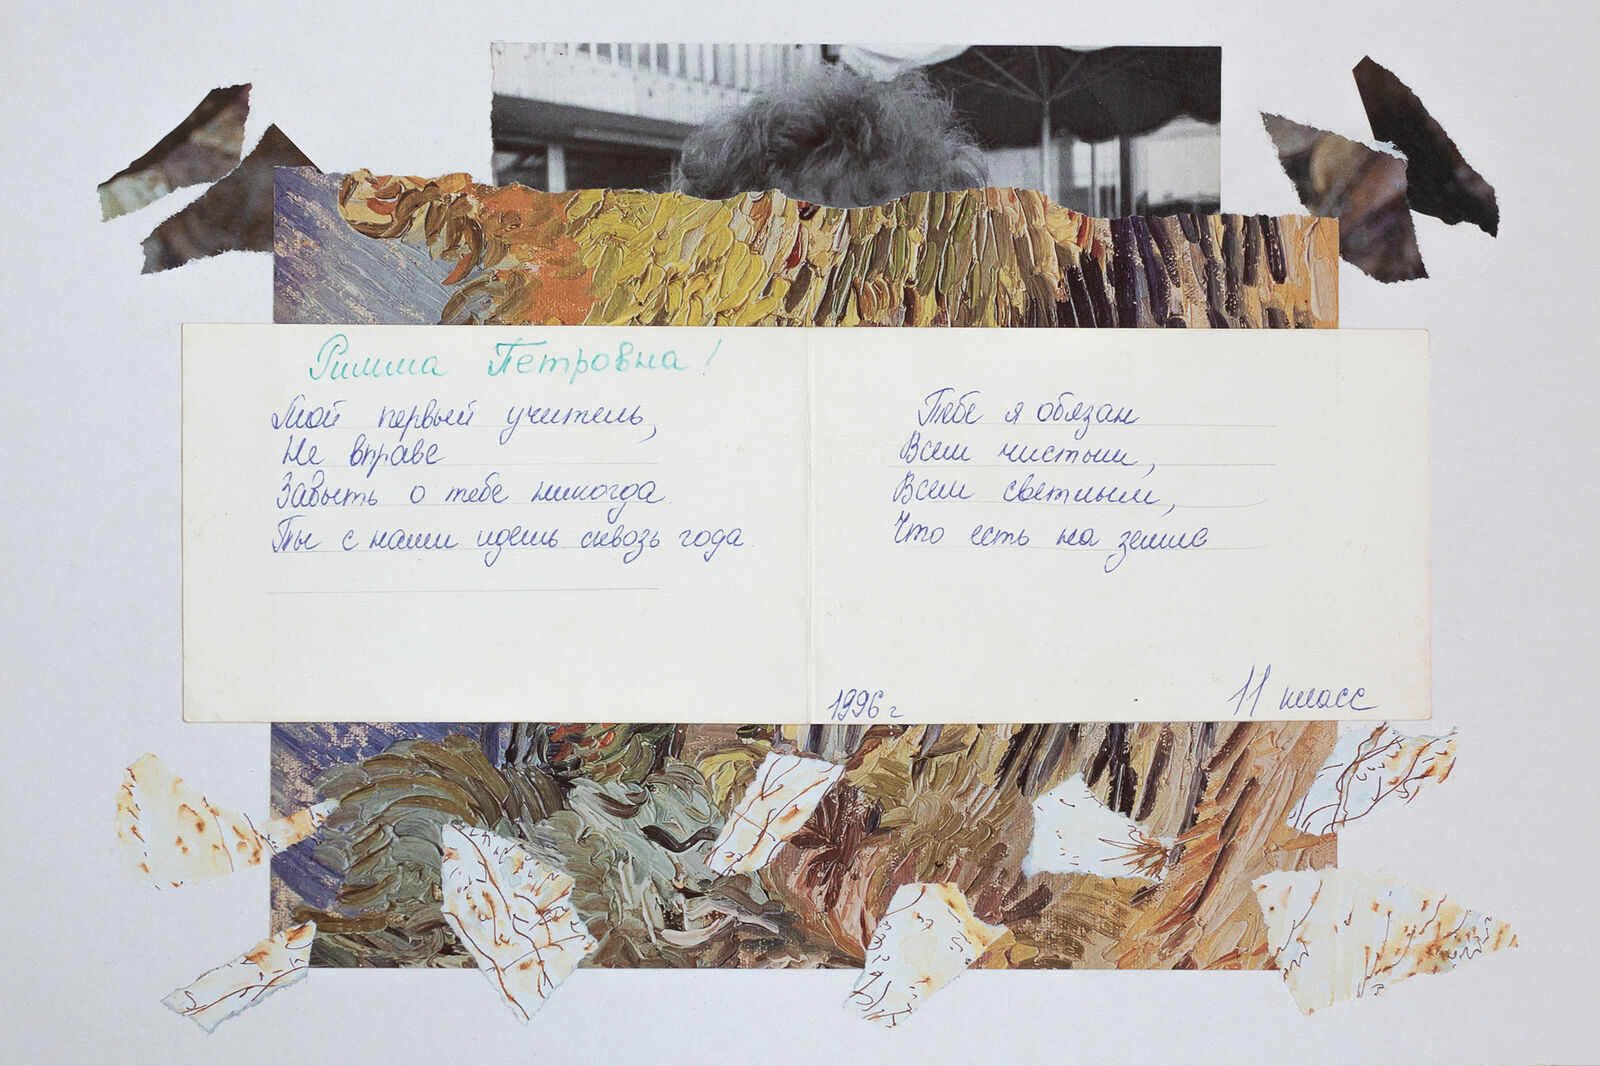 Римма Петровна!
Мой первый учитель,
Не вправе
Забыть о тебе никогда.
Ты с нами идешь сквозь года.
Тебе я обязан
Всем чистым,
Всем светлым,
Что есть на земле
1996 г
11 класс